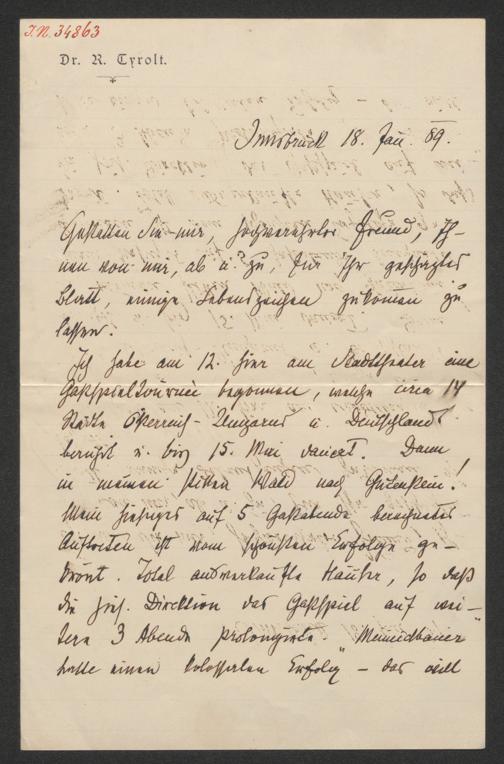 I.N. 34863
Dr. R. Tyrolt.
Innsbruck 18. Jan. 89.
Gestatten Sie mir, hochverehrter Freund, Ih-
nen von mir, ab u. zu, für Ihr geschätztes
Blatt, einige Lebenszeichen zukommen zu
lassen.
Ich habe am 12. hier am Stadttheater eine
Gastspieltournée begonnen, welche circa 14
Städte Österreich-Ungarns u. Deutschlands
berührt u. bis 15. Mai dauert. Dann
in meinen stillen Wald nach Gutenstein!
Mein hiesiges auf 5 Gastabende berechnetes
Auftreten ist vom schönsten Erfolge ge-
krönt. Total ausverkaufte Häuser, so daß
die hies. Direktion das Gastspiel auf wei-
tere 3 Abende prolongirte. "Meineidbauer"
hatte einen kolossalen Erfolg – das will